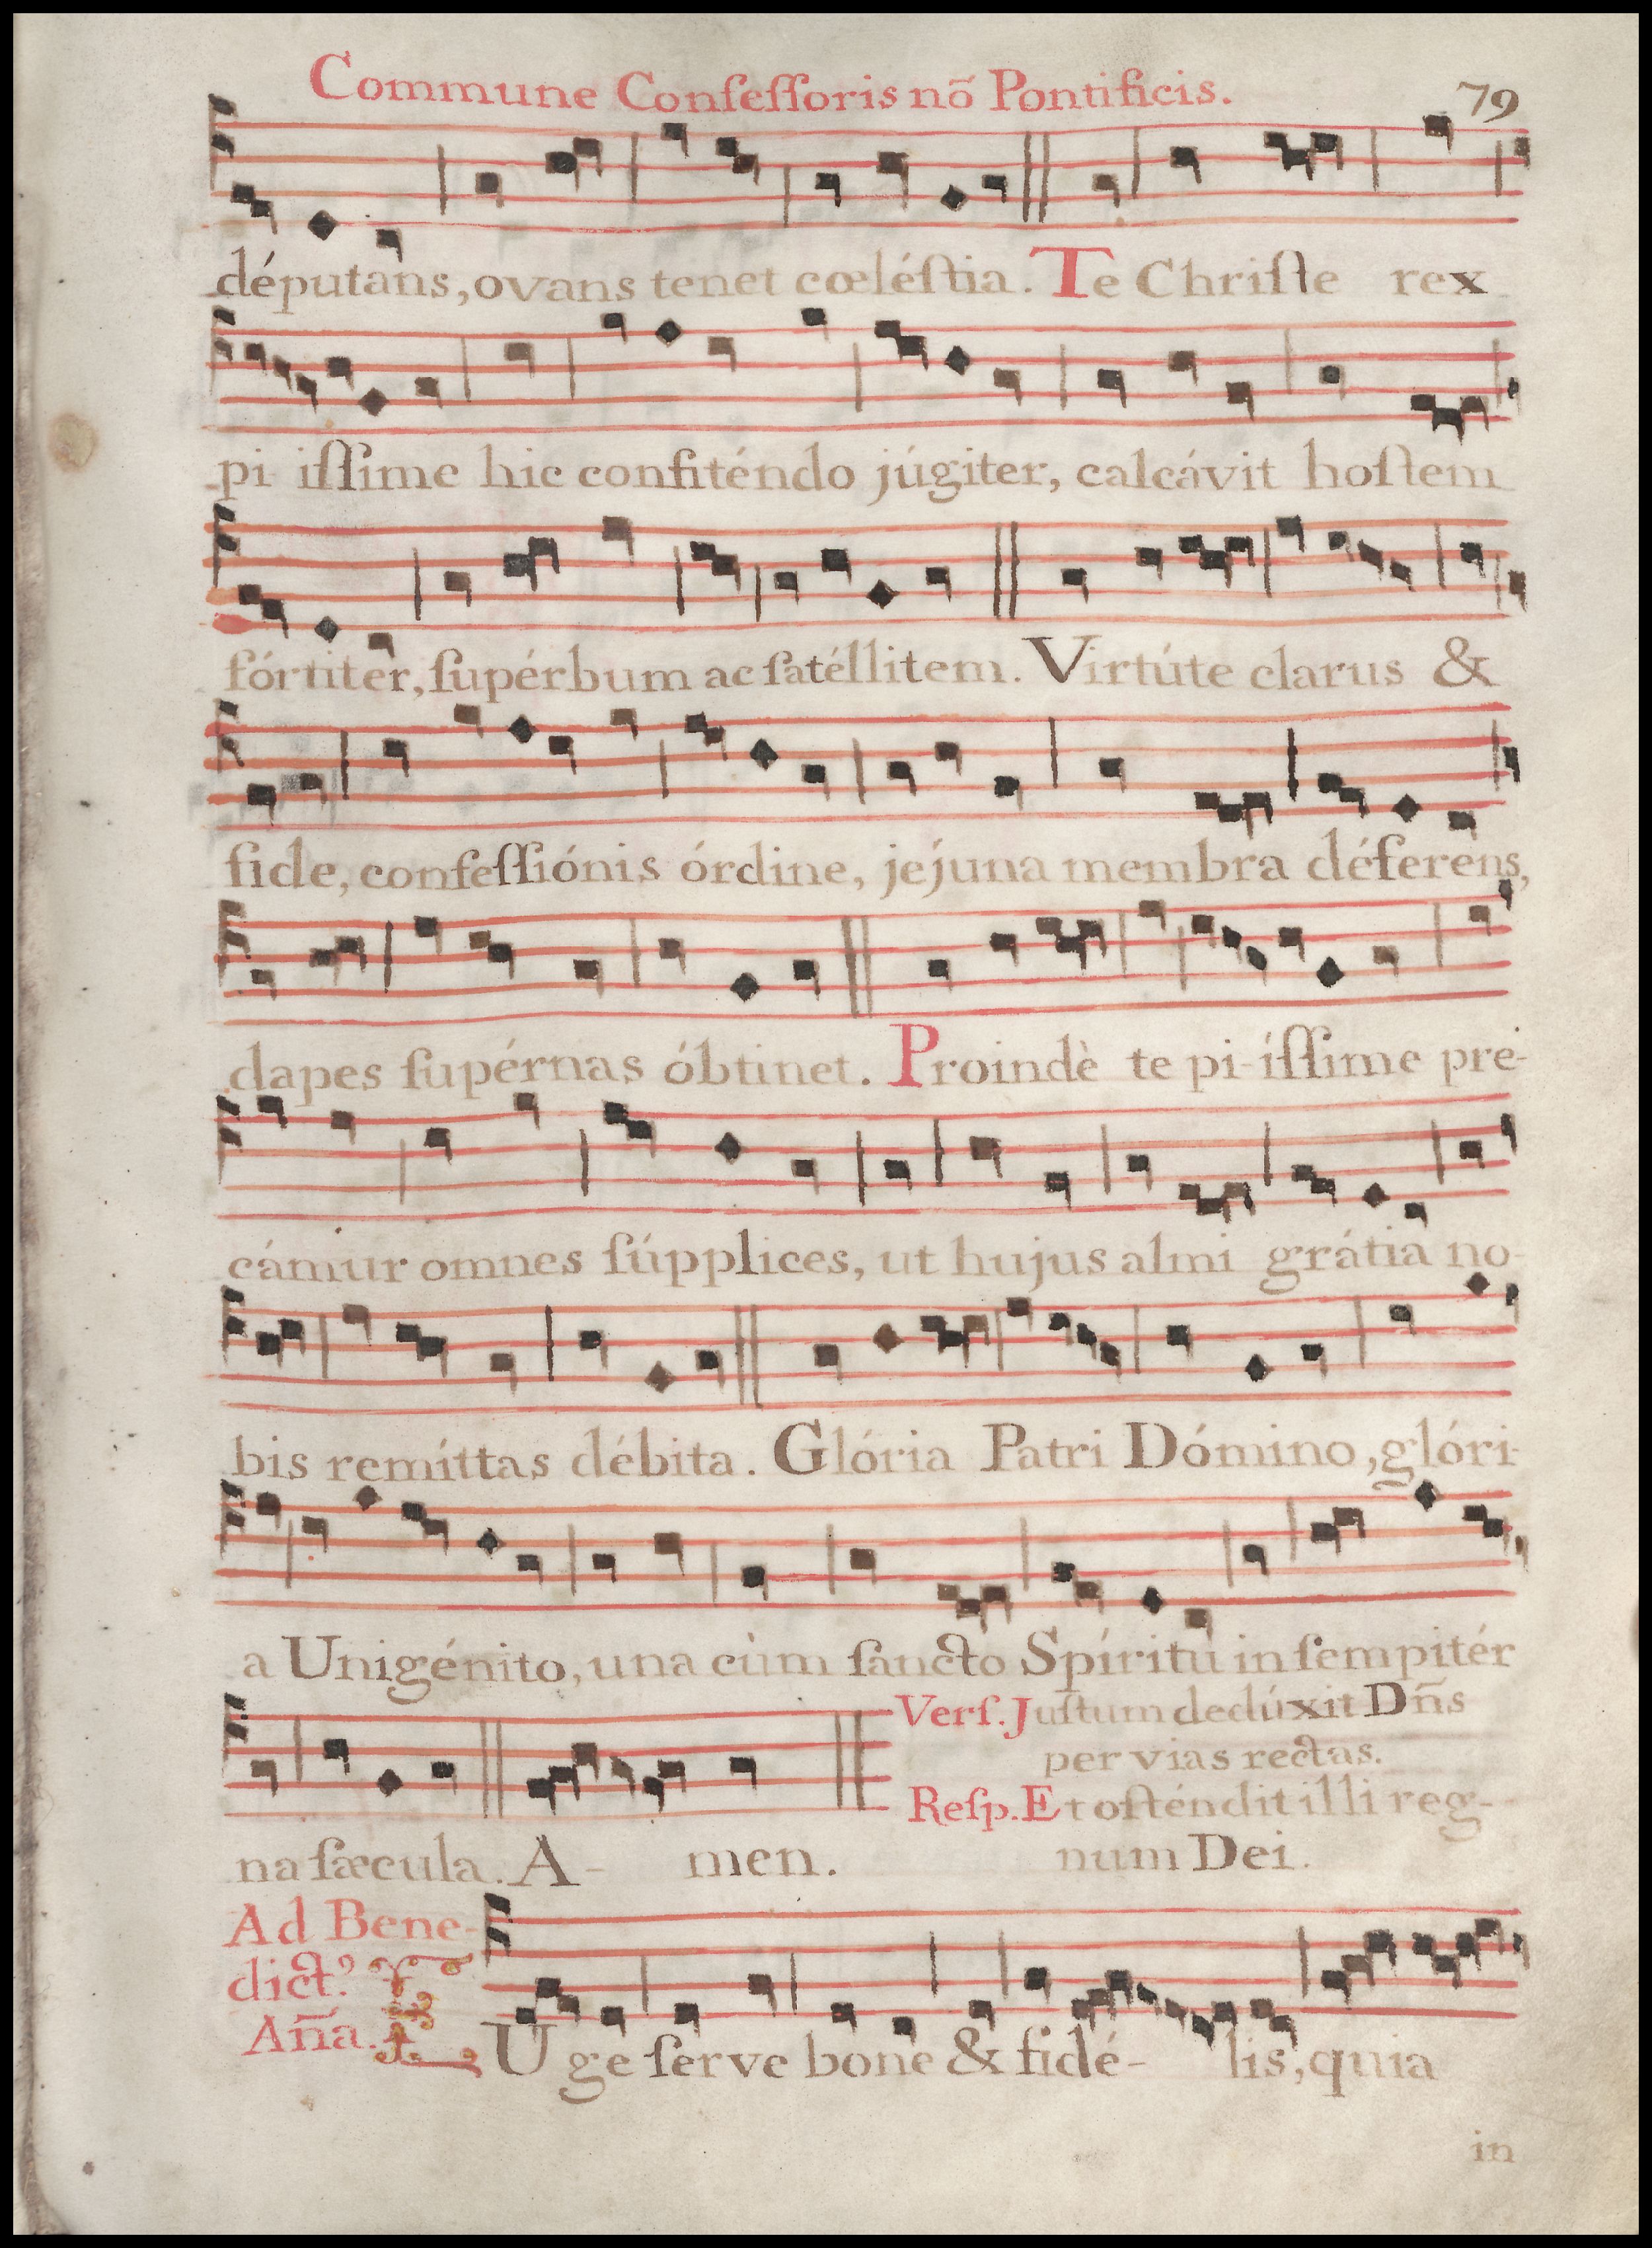 Commune Confeſſoris nõ Pontificis. 79
députans, ovans tenet cœléſtia. Te Chriſte rex
pi iſſime hic confiténdo júgiter, calcávit hoſtem
fórtiter, ſupérbum ac ſatéllitem. Virtúte clarus &
fide, confeſſiónis órdine, jejuna membra déferens,
dapes ſupérnas óbtinet. Proindè te pi-íſſime pre-
cámur omnes ſúpplices, ut hujus almi grátia no-
bis remíttas débita. Glória Patri Dómino, glóri-
a Unigénito, una cùm ſancto Spíritu in ſempitér
na ſæcula. A- men.
Verſ. Juſtum dedúxit Dñs
per vias rectas.
Reſp. Et oſténdit illi reg-
num Dei.
Ad Bene-
dict.⁹
Aña.
EUge ſerve bone & fidé- lis, quia
in